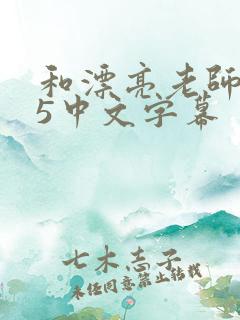 和漂亮老師
5中文字幕
七木志子
未经同意禁止转载